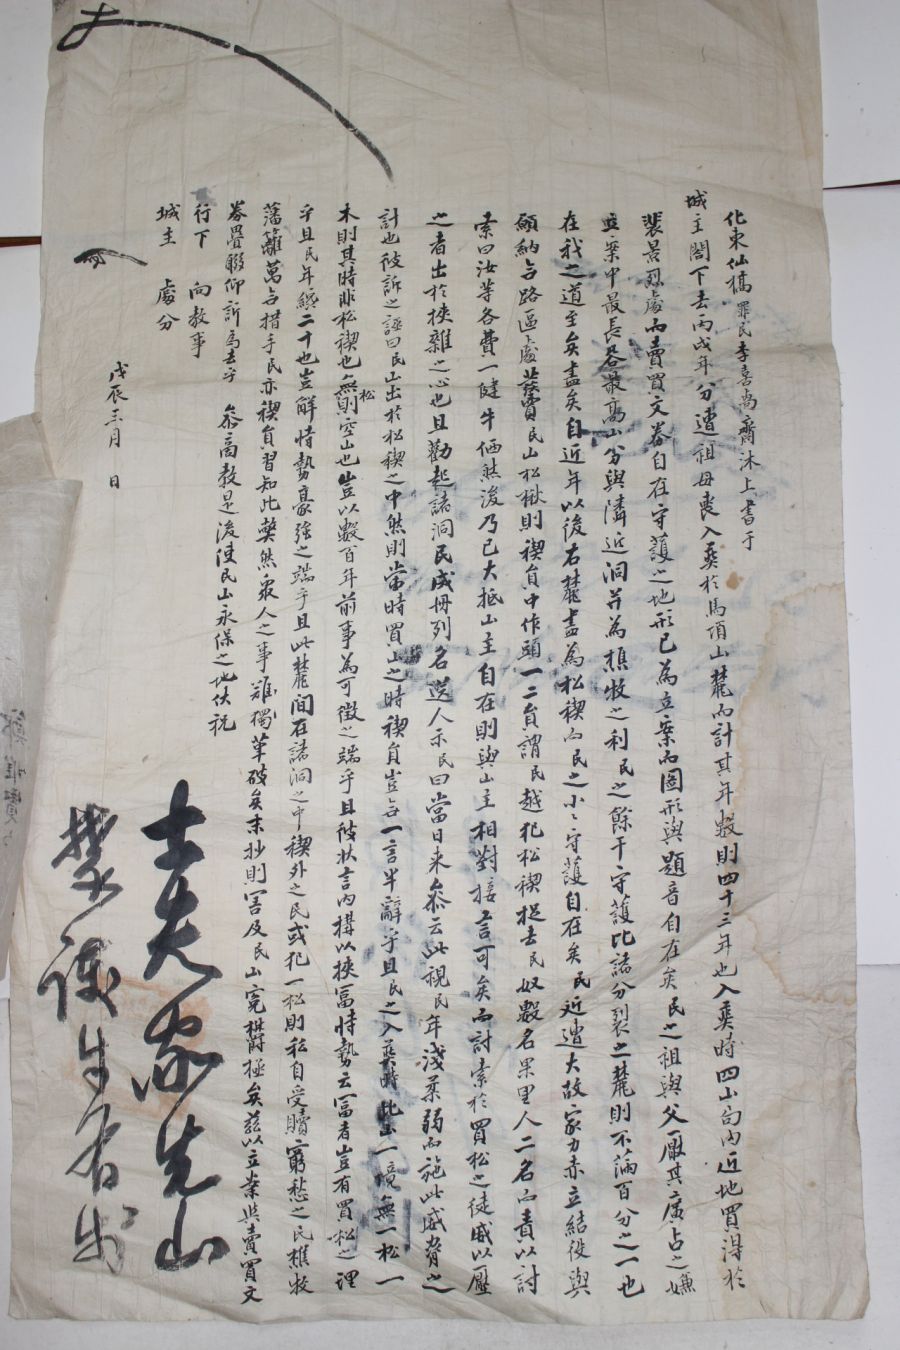 化東仙橋罪民李喜壽齋沐上書于
城主閤下去丙戌年分遭祖母喪入葬於馬項山麓而計其年數則四十三年也入葬時四山局內近地買得於
裴景烈處而賣買文券自在守護之地形已為立案而圖形與題音自在矣民之祖與父厭其廣占之嫌
立案中最長谷最高山分與隣近洞以為樵牧之利民之餘干守護比諸分裂之麓則不滿百分之一也
在我之道至矣盡矣自近年以後右麓盡為松禊而民之小小守護自在矣民近遭大故家力赤立結役與
願納言路區處 民山松楸則禊員中作頭一二員謂民越犯松禊捉去民奴數名果里人二名而責以討
索曰汝等各費一健牛価然後乃已大抵山主自在則與山主相對接言可矣而討索於買松之徒威以壓
之者出於挾雜之心也且勸起諸洞民成冊列名送人示民曰當日來參云此視民年淺柔弱而施此威脅之
計也彼訴之誣曰民山出於松禊之中然則當時買山之時禊員豈言一言半辭乎且民之入葬時此山一境無一松一
木則其時非松禊也無松則空山也豈以數百年前事為可徵之端乎且彼狀言內構以挾富恃勢云富者豈有買松之理
乎且民年纔二十也豈解恃勢豪强之端乎且此麓間在諸洞之中禊外之民或犯一松則私自受贖窮愁之民樵牧
藩籬萬無措手民亦禊員習知此弊然衆人之事難獨革破矣末抄則害及民山冤枉鬱極矣玆以立案與賣買文
券疊聯仰訴為去乎 參商教是後使民山永保之地伏祝
行下 向教事
城主 處分
戊辰三月 日
士夫家先山
禁護生者生